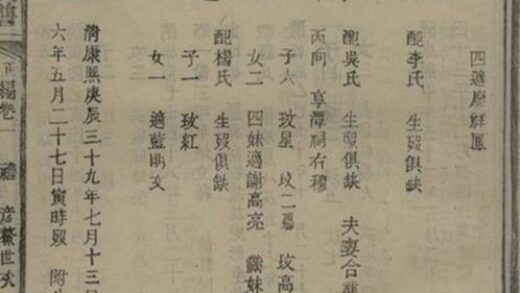 四適廖祥鳳
配李氏 生歿俱缺
配吳氏 生歿俱缺 夫妻合葬
丙向 享潭祠右穆
子六 玫星 玫二 玫高
女二 四妹適謝高亮
配楊氏 生歿俱缺
子一 玫紅
女一 適藍明亥
清康熙庚辰三十九年七月十三日
六年五月二十七日寅時歿 附
正編卷一
彥鰲世